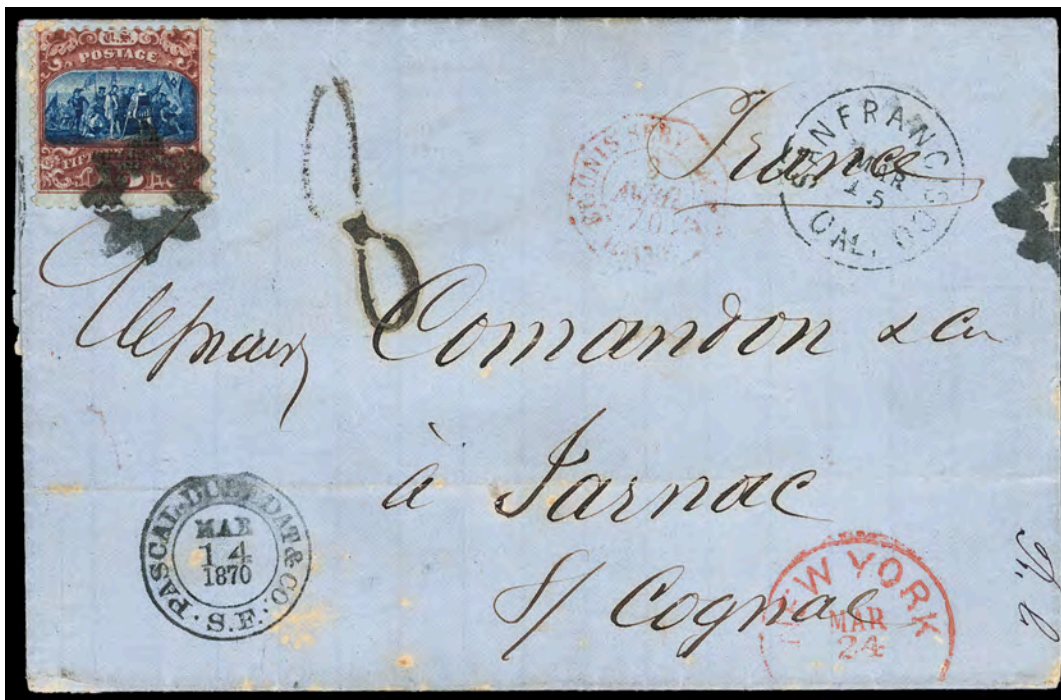 U.S.
POSTAGE
8
France
SAN FRANCISCO
MAR
15
CAL.
70
Comandon & Cie
à Jarnac
S/ Cognac
PASCAL DUBEDAT & CO.
MAR
14
1870
S.F.
NEW YORK
MAR
24